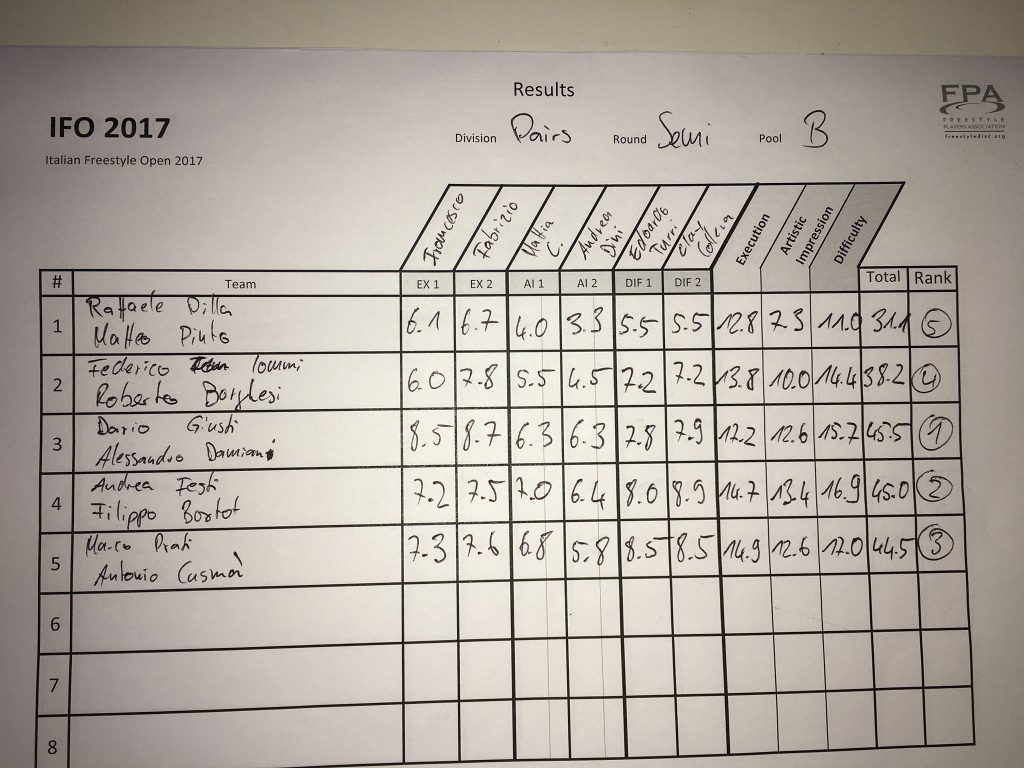 Results
IFO 2017
Italian Freestyle Open 2017
Division Pairs Round Semi Pool B
FPA
FREESTYLE
PLAYERS ASSOCIATION
freestyledisc.org
Francesco Fabrizio Mattia C. Andrea Dini Edoardo Turri Clay Collera Execution Artistic Impression Difficulty
# Team EX 1 EX 2 AI 1 AI 2 DIF 1 DIF 2 Total Rank
Raffaele Dilla
1 6.1 6.7 4.0 3.3 5.5 5.5 12.8 7.3 11.0 31.1 5
Matteo Pinto
Federico Iommi
2 6.0 7.8 5.5 4.5 7.2 7.2 13.8 10.0 14.4 38.2 4
Roberto Borghesi
Dario Giusti
3 8.5 8.7 6.3 6.3 7.8 7.9 17.2 12.6 15.7 45.5 1
Alessandro Damiani
Andrea Festi
4 7.2 7.5 7.0 6.4 8.0 8.9 14.7 13.4 16.9 45.0 2
Filippo Bortot
Marco Prati
5 7.3 7.6 6.8 5.8 8.5 8.5 14.9 12.6 17.0 44.5 3
Antonio Cusmà
6
7
8